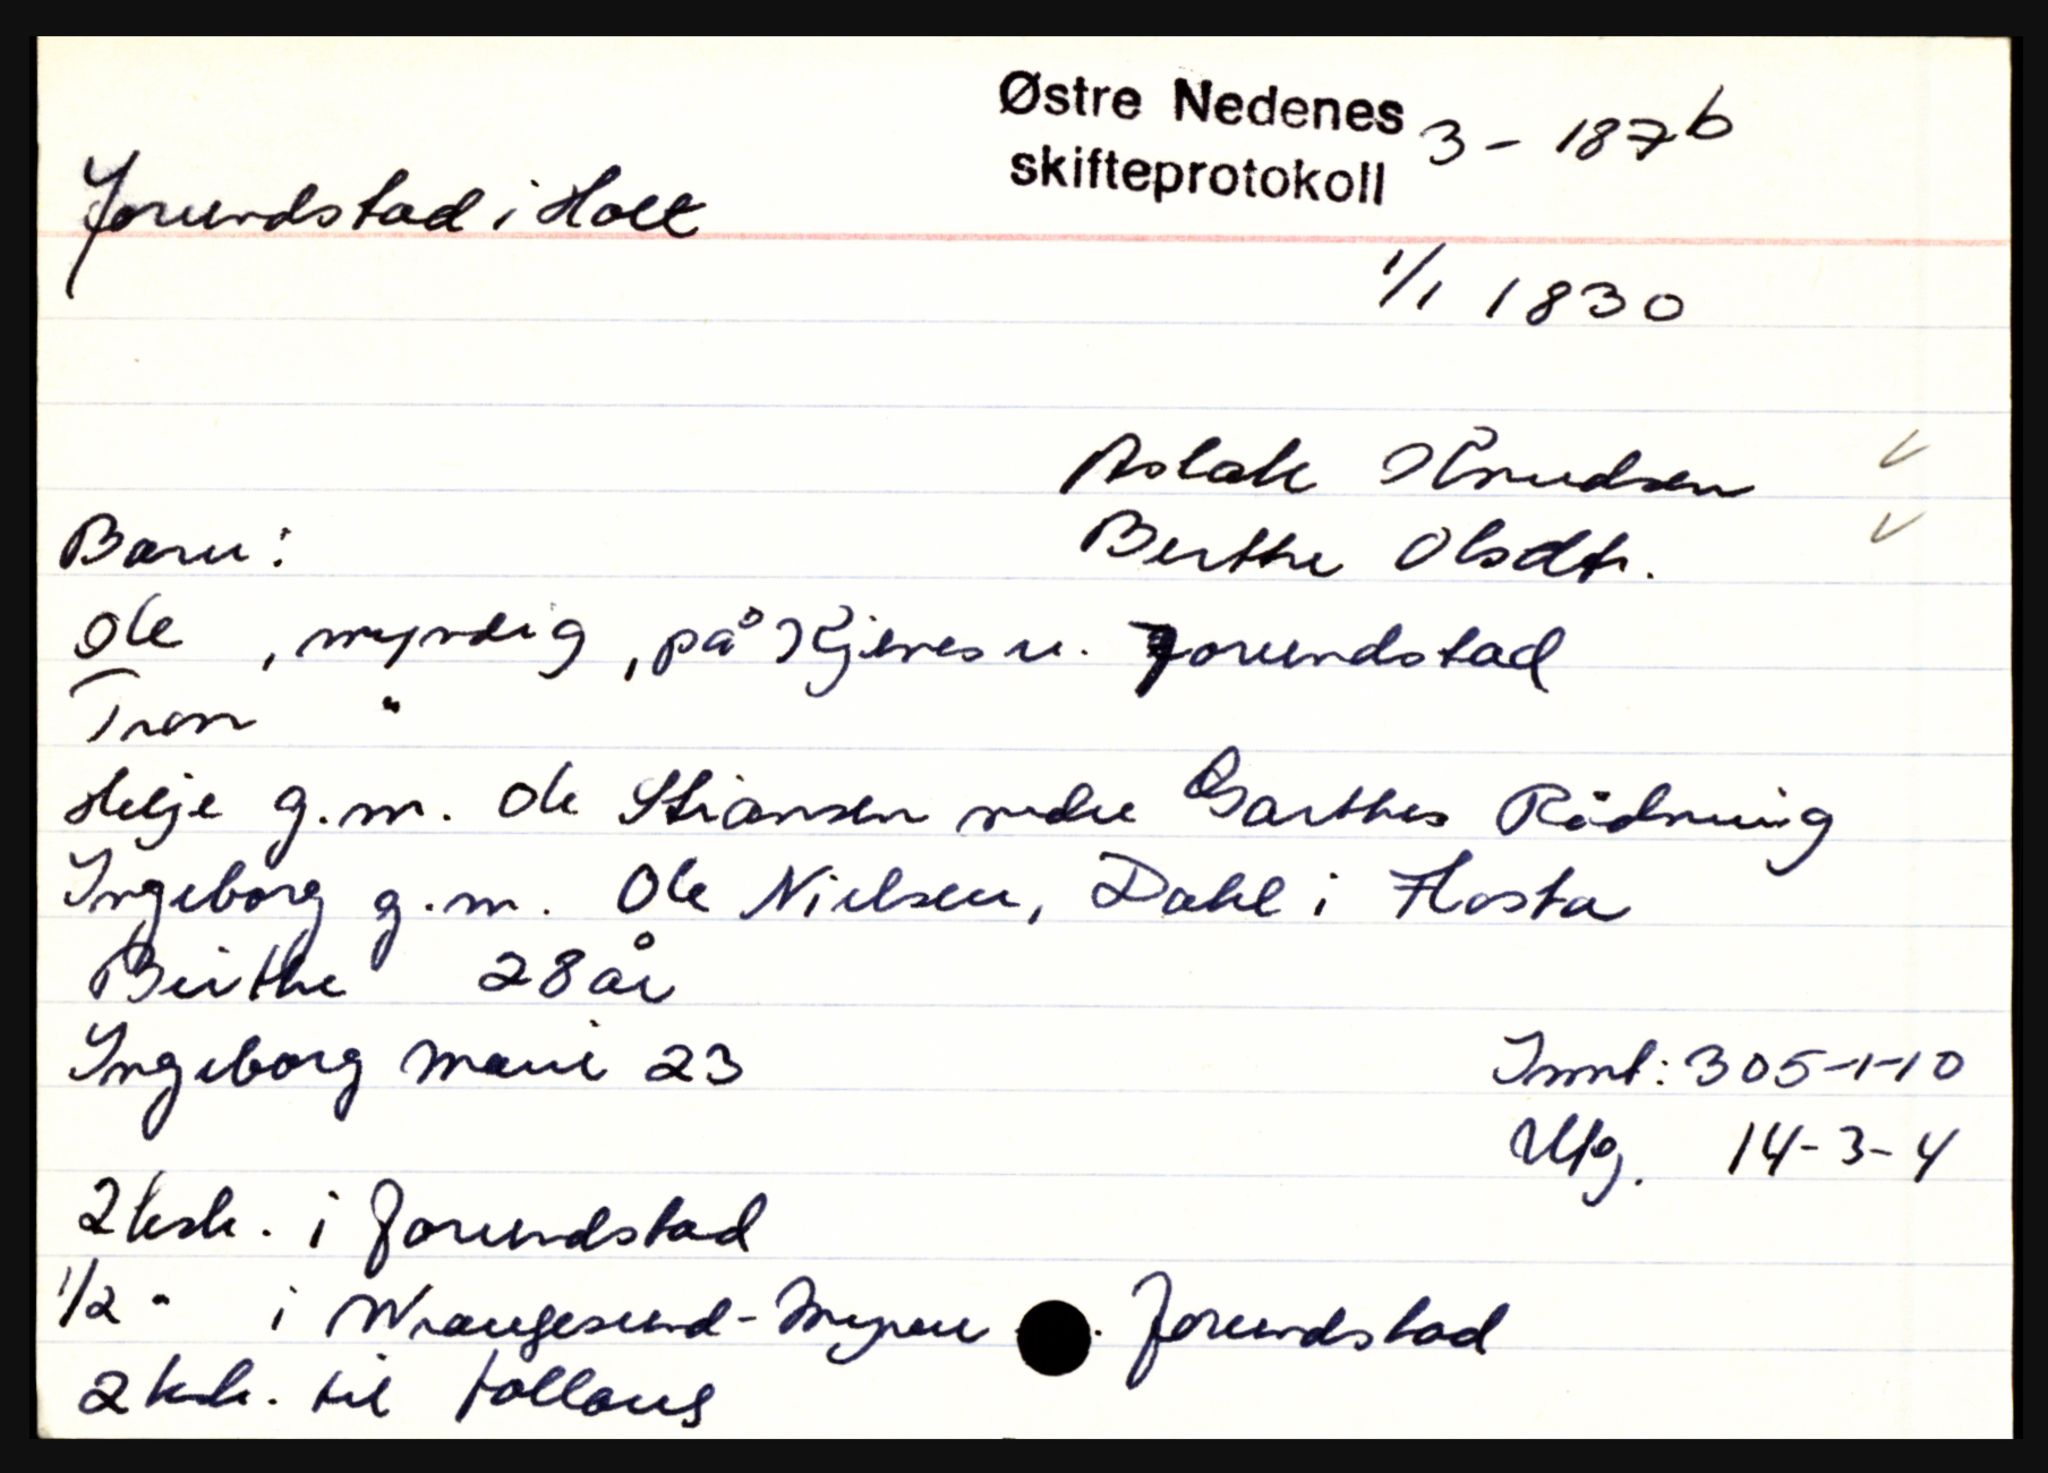 Østre Nedenes
skifteprotokoll 3 - 187b
Jorundstad i Holt
1/1 1830
Aslak Knudsen ✓
Berthe Olsdtr. ✓
Barn:
Ole , myndig , på Kjenes u. Jorundstad
Tron "
Helje g.m. Ole Stiansen nedre Garthes Rödning
Ingeborg g.m. Ole Nielsen, Dahl i Flosta
Berthe 28 år
Ingeborg Marie 23
Innt: 305-1-10
Utg. 14-3-4
2 ksk. i Jorundstad
1/2 " i Wrangesund-Myren . Jorundstad
2 ksk. til